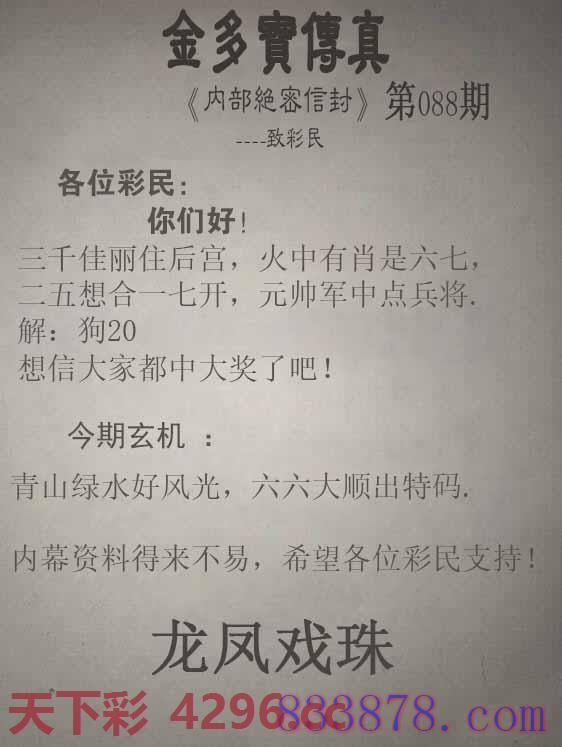 金多寶傳真
《内部絕密信封》第088期
----致彩民
各位彩民:
你们好!
三千佳丽住后宫，火中有肖是六七，
二五想合一七开，元帅军中点兵将.
解：狗20
想信大家都中大奖了吧!
今期玄机 ：
青山绿水好风光，六六大顺出特码.
内幕资料得来不易，希望各位彩民支持!
龙凤戏珠
天下彩 4296.cc
883878.com